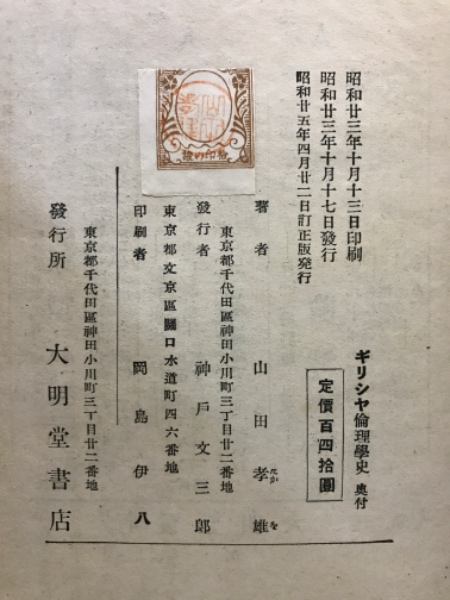 昭和廿三年十月十三日印刷
昭和廿三年十月十七日發行
昭和廿五年四月廿二日訂正版発行
ギリシヤ倫理學史 奥付
定價百四拾圓
著者 山田孝雄
たか を
東京都千代田區神田小川町三丁目廿二番地
發行者 神戸文三郎
東京都文京區關口水道町四六番地
印刷者 岡島伊八
東京都千代田區神田小川町三丁目廿二番地
發行所 大明堂書店